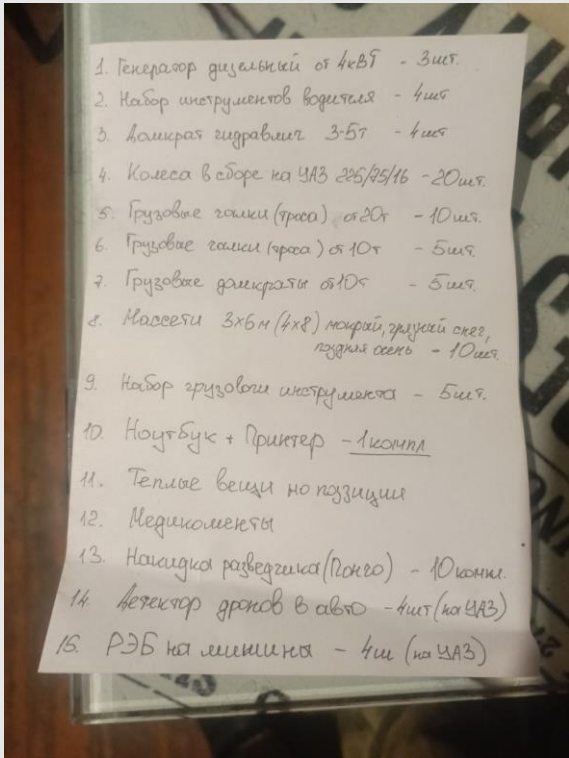 1. Генератор дизельный от 4кВТ - 3шт.
2. Набор инструментов водителя - 4шт
3. Домкрат гидравлич 3-5т - 4шт
4. Колеса в сборе на УАЗ 225/75/16 - 20шт.
5. Грузовые галки (троса) от 20т - 10шт.
6. Грузовые галки (троса) от 10т - 5шт.
7. Грузовые домкраты от 10т - 5шт.
8. Массети 3х6м (4х8) мокрый, грязный снег,
поздняя осень - 10шт.
9. Набор грузового инструмента - 5шт.
10. Ноутбук + Принтер - 1компл
11. Теплые вещи на позиции
12. Медикаменты
13. Накидка разведчика (Пончо) - 10компл.
14. Детектор дронов в авто - 4шт (на УАЗ)
15. РЭБ на машины - 4ш (на УАЗ)